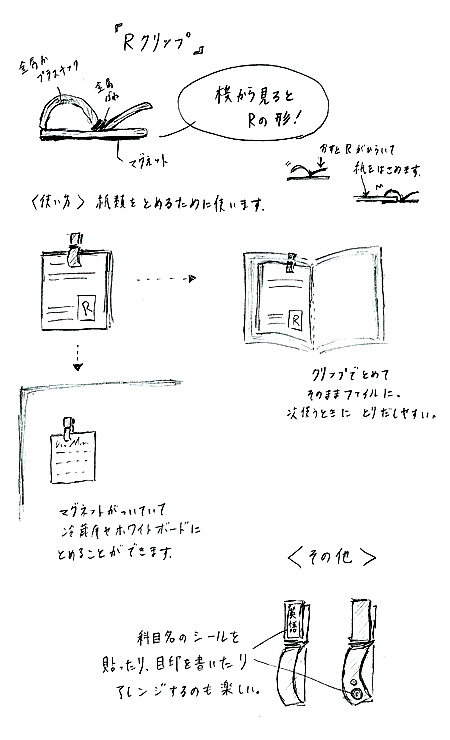 『Rクリップ』
金属か
プラスチック
金属
ばね
横から見ると
Rの形!
マグネット
おすとRがういて
紙をはさめます。
〈使い方〉 紙類をとめるために使います。
R
R
クリップでとめて
そのままファイルに。
次使うときに とりだしやすい。
マグネットがついていて
冷蔵庫やホワイトボードに
とめることができます。
〈その他〉
英語
科目名のシールを
貼ったり、目印を書いたり
アレンジするのも楽しい。